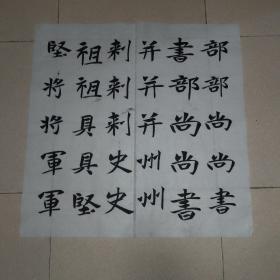 部部尚尚書
書部尚尚書
并并并州州
刺刺刺史史
祖祖具具堅
堅将将軍軍